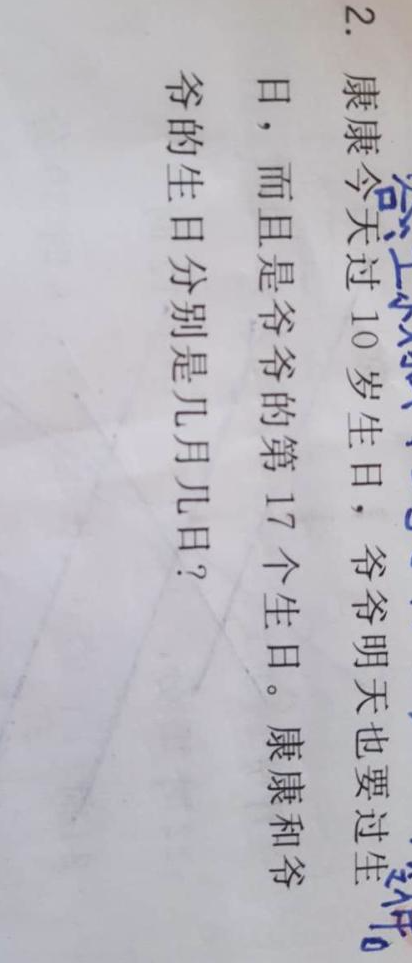 2. 康康今天过 10 岁生日，爷爷明天也要过生
日，而且是爷爷的第 17 个生日。康康和爷
爷的生日分别是几月几日？